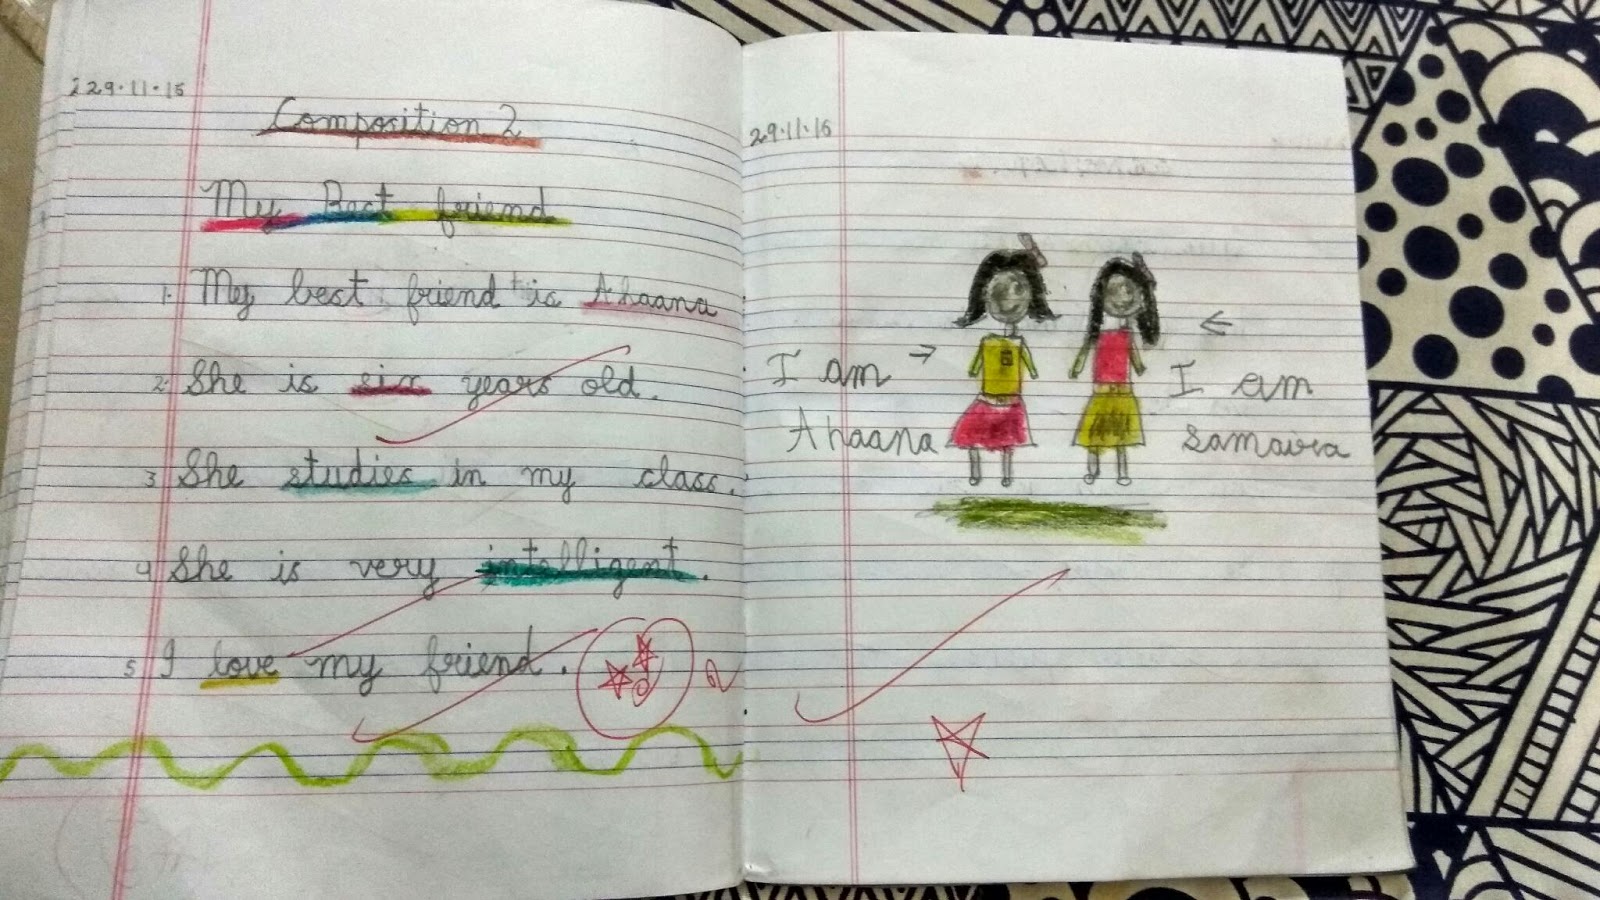 29.11.15
Composition 2
My Best friend
1. My best friend is Ahaana
2. She is six years old.
3 She studies in my class.
4 She is very intelligent.
5 I love my friend.
29.11.15
I am
Ahaana
I am
Samaira